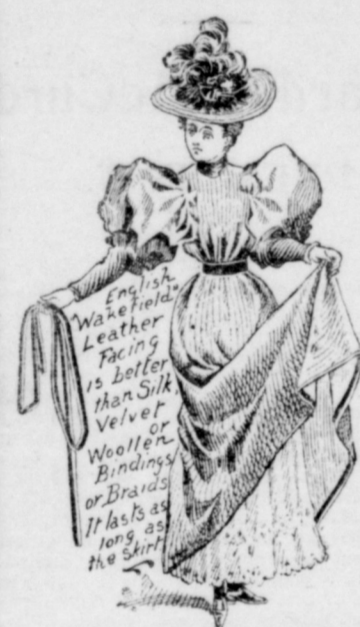 English
"Wakefield"
Leather
Facing
is better
than Silk,
Velvet
or
Woollen
Bindings
or Braids
It lasts as
long as
the skirt